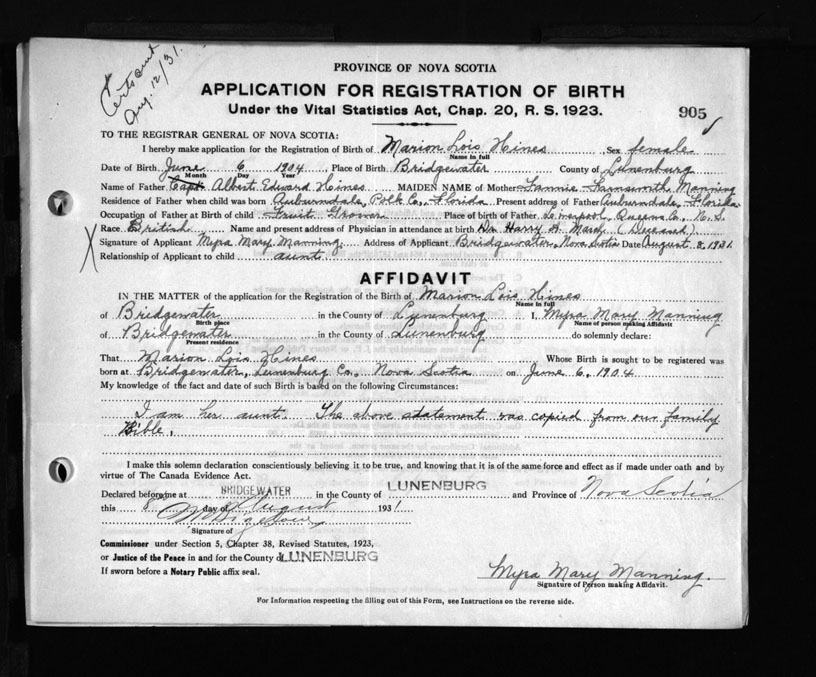 Cert sent
Aug. 12/31.
PROVINCE OF NOVA SCOTIA
APPLICATION FOR REGISTRATION OF BIRTH
Under the Vital Statistics Act, Chap. 20, R. S. 1923.
905
TO THE REGISTRAR GENERAL OF NOVA SCOTIA:
I hereby make application for the Registration of Birth of Marion Lois Hines Sex female
Name in full
Date of Birth June 6 1904 Place of Birth Bridgewater County of Lunenburg
Month Day Year
Name of Father Capt. Albert Edward Hines MAIDEN NAME of Mother Fannie Farnsworth Manning
Residence of Father when child was born Auburndale, Polk Co., Florida Present address of Father Auburndale, Florida
Occupation of Father at Birth of child Fruit Grower Place of birth of Father Liverpool, Queens Co., N.S.
Race British Name and present address of Physician in attendance at birth Dr. Harry A. March (Deceased)
Signature of Applicant Myra Mary Manning Address of Applicant Bridgewater, Nova Scotia Date August 8, 1931.
Relationship of Applicant to child aunt
AFFIDAVIT
IN THE MATTER of the application for the Registration of the Birth of Marion Lois Hines
Name in full
of Bridgewater in the County of Lunenburg I, Myra Mary Manning
Birth place Name of person making Affidavit
of Bridgewater in the County of Lunenburg do solemnly declare:
Present residence
That Marion Lois Hines Whose Birth is sought to be registered was
born at Bridgewater, Lunenburg Co., Nova Scotia on June 6, 1904
My knowledge of the fact and date of such Birth is based on the following Circumstances:
I am her aunt. The above statement was copied from our family
Bible.
I make this solemn declaration conscientiously believing it to be true, and knowing that it is of the same force and effect as if made under oath and by
virtue of The Canada Evidence Act.
Declared before me at BRIDGEWATER in the County of LUNENBURG and Province of Nova Scotia
this 8 day of August 1931
Signature of
Commissioner under Section 5, Chapter 38, Revised Statutes, 1923,
or Justice of the Peace in and for the County of LUNENBURG
If sworn before a Notary Public affix seal.
Myra Mary Manning.
Signature of Person making Affidavit.
For Information respecting the filling out of this Form, see Instructions on the reverse side.